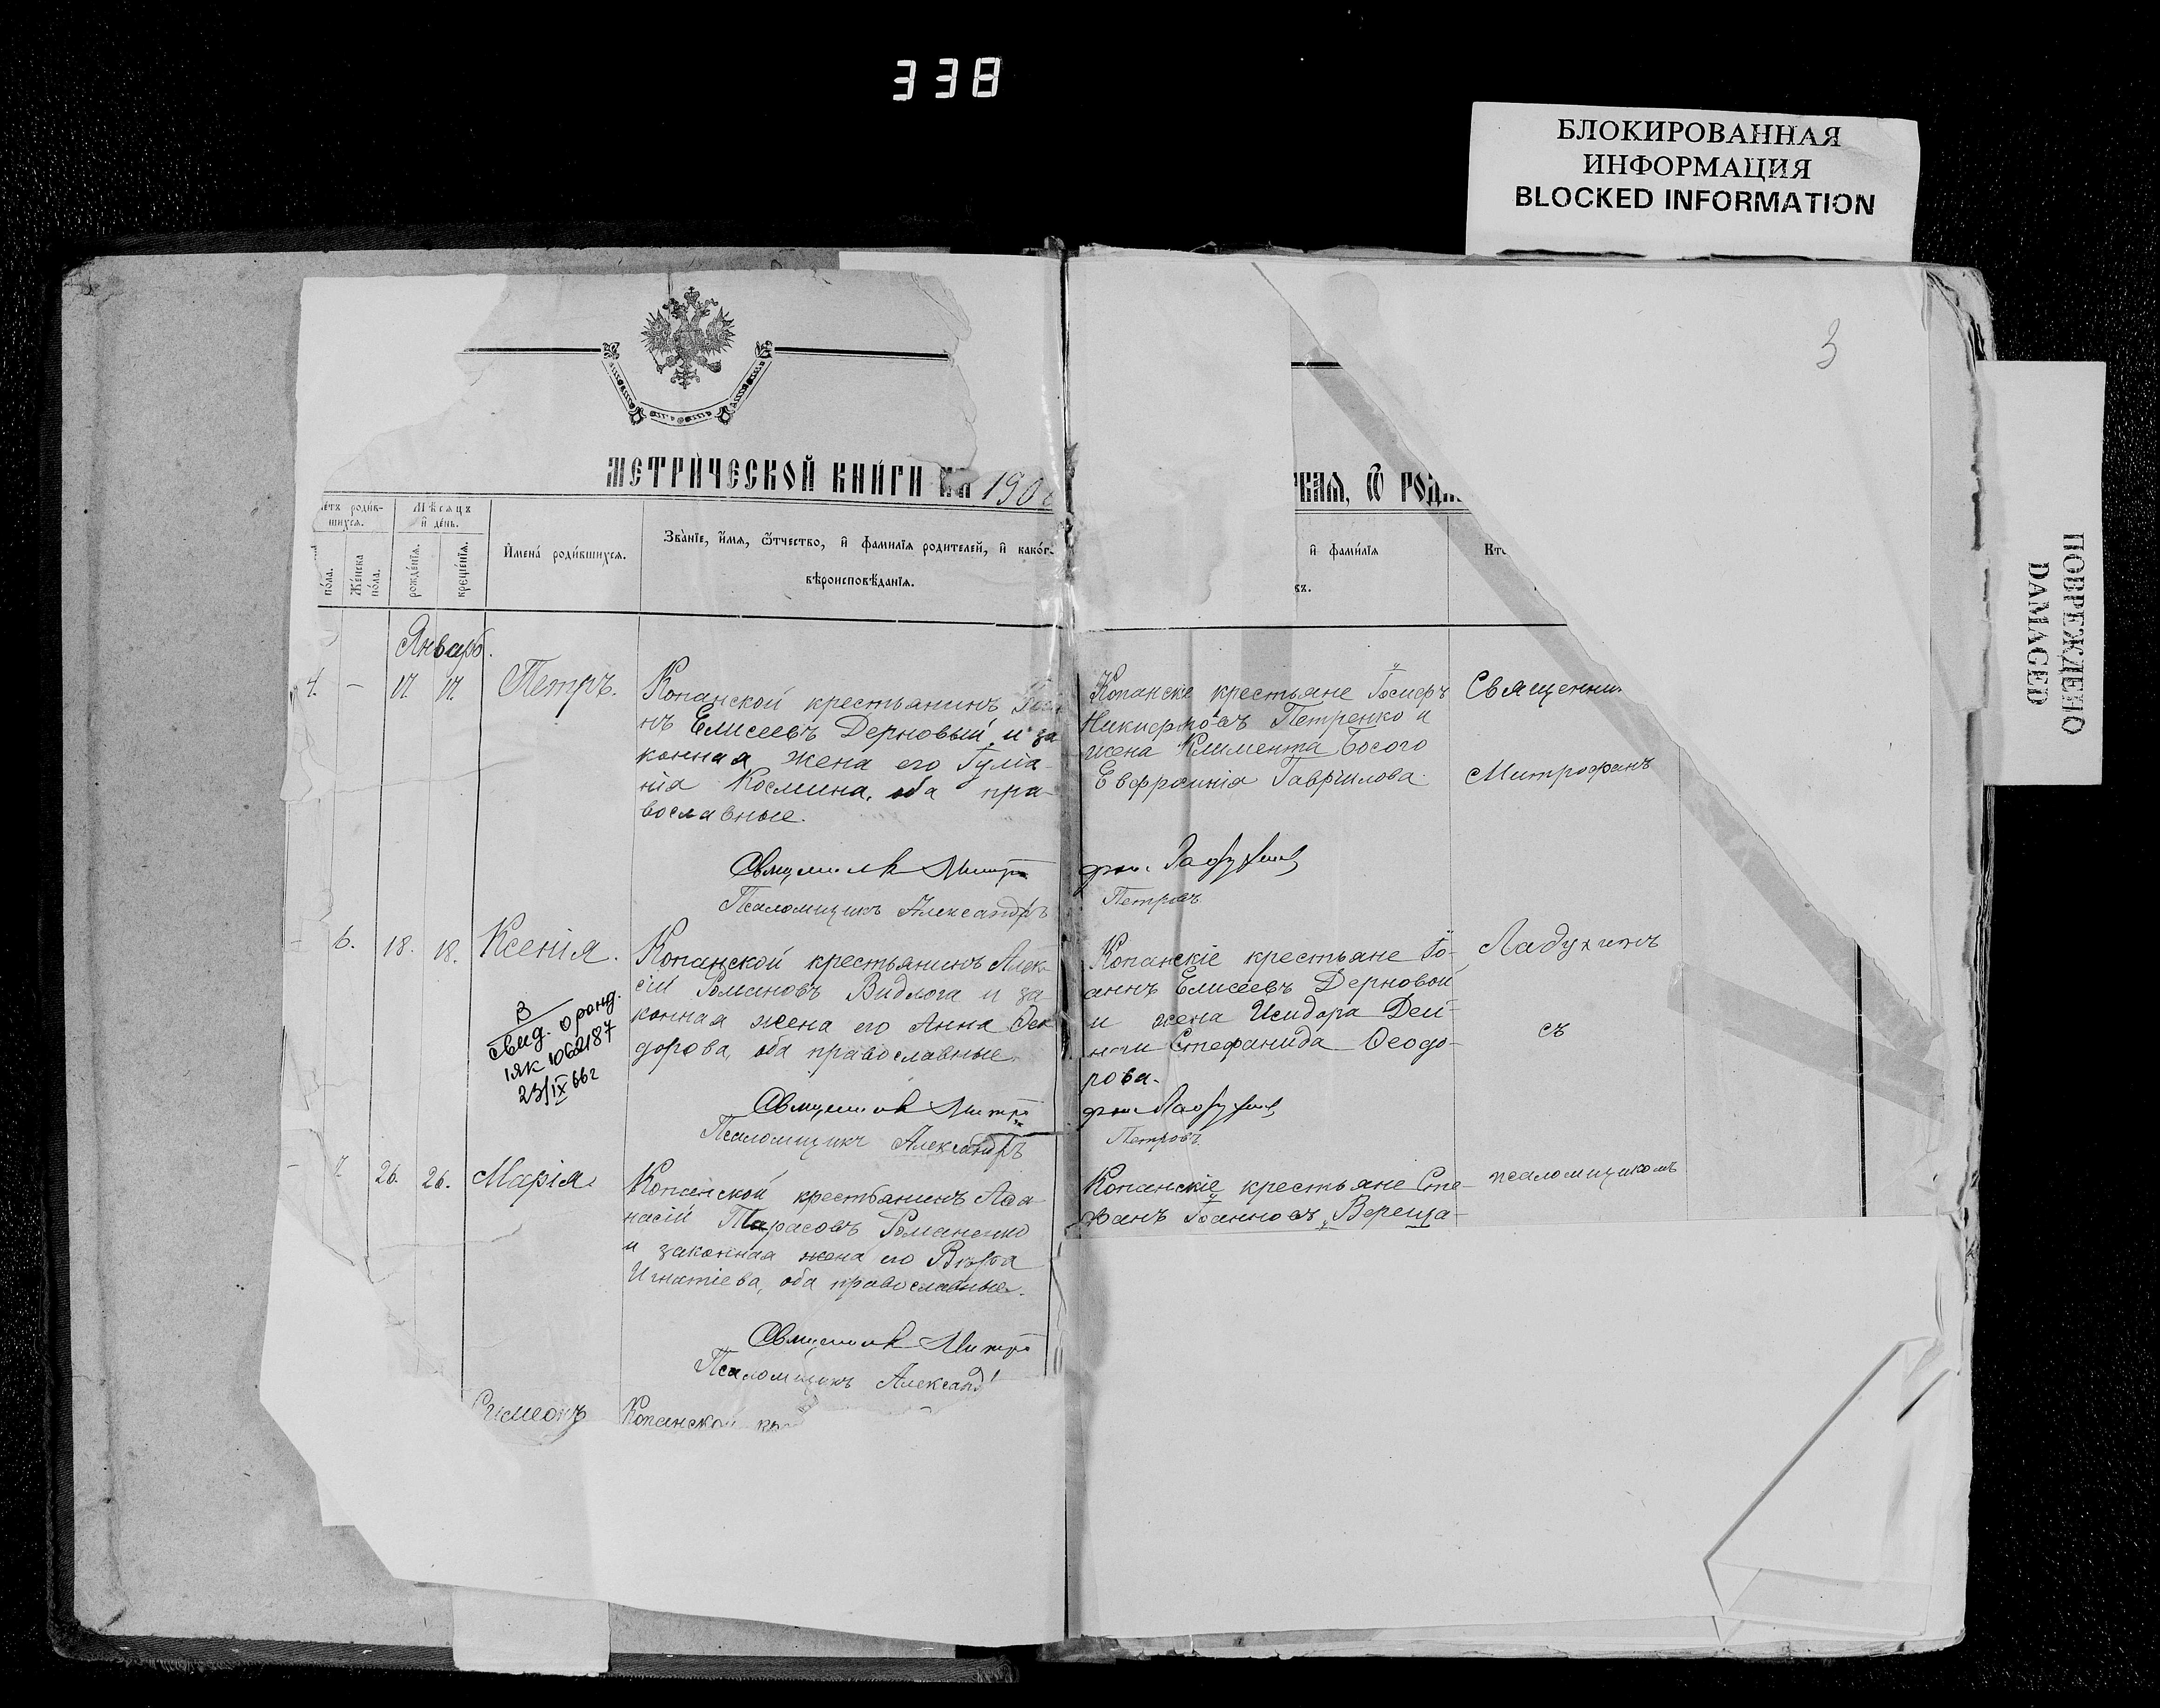 338
БЛОКИРОВАННАЯ
ИНФОРМАЦИЯ
BLOCKED INFORMATION
ПОВРЕЖДЕНО
DAMAGED
3
МЕТРИЧЕСКОЙ КНИГИ НА 190
родив-
шихся.
Мѣсяцъ
и день.
пола.
Женска
пола.
рожденія.
крещенія.
Имена родившихся.
Званіе, имя, отчество, и фамилія родителей, и каког-
вѣроисповѣданія.
и фамилія
Кто
Январь.
4. — 17. 17. Петръ.
Копанской крестьянинъ
нъ Елисеевъ Дерновый и за
конная жена его Іулiа-
нія Космина, оба пра-
вославные.
Священникъ Митро
Псаломщикъ Александръ
Копанскіе крестьяне Іосифъ
Никифоровъ Петренко и
жена Климента Босого
Евфросинія Гаврилова.
фан Ладухин
Петровъ
Священни
Митрофанъ
6. 18. 18. Ксенія.
В
свид. о рожд.
IЯК 1062187
23/IX 66г
Копанской крестьянинъ Алек
сій Романовъ Видлога и за-
конная жена его Анна Ѳео
дорова, оба православные.
Священникъ Митро
Псаломщикъ Александръ
Копанскіе крестьяне Іо-
аннъ Елисеевъ Дерновой
и жена Исидора Дей-
неги Стефанида Ѳеодо-
рова.
фан Ладухин
Петровъ.
Ладухинъ
съ
7. 26. 26. Марія.
Копанской крестьянинъ Аѳа
насій Тарасовъ Романенко
и законная жена его Вѣра
Игнатіева, оба православные.
Священникъ Митро
Псаломщикъ Александ
Копанскіе крестьяне Сте-
фанъ Іоанновъ Вереща-
псаломщикомъ
Симеонъ
Копанской кр